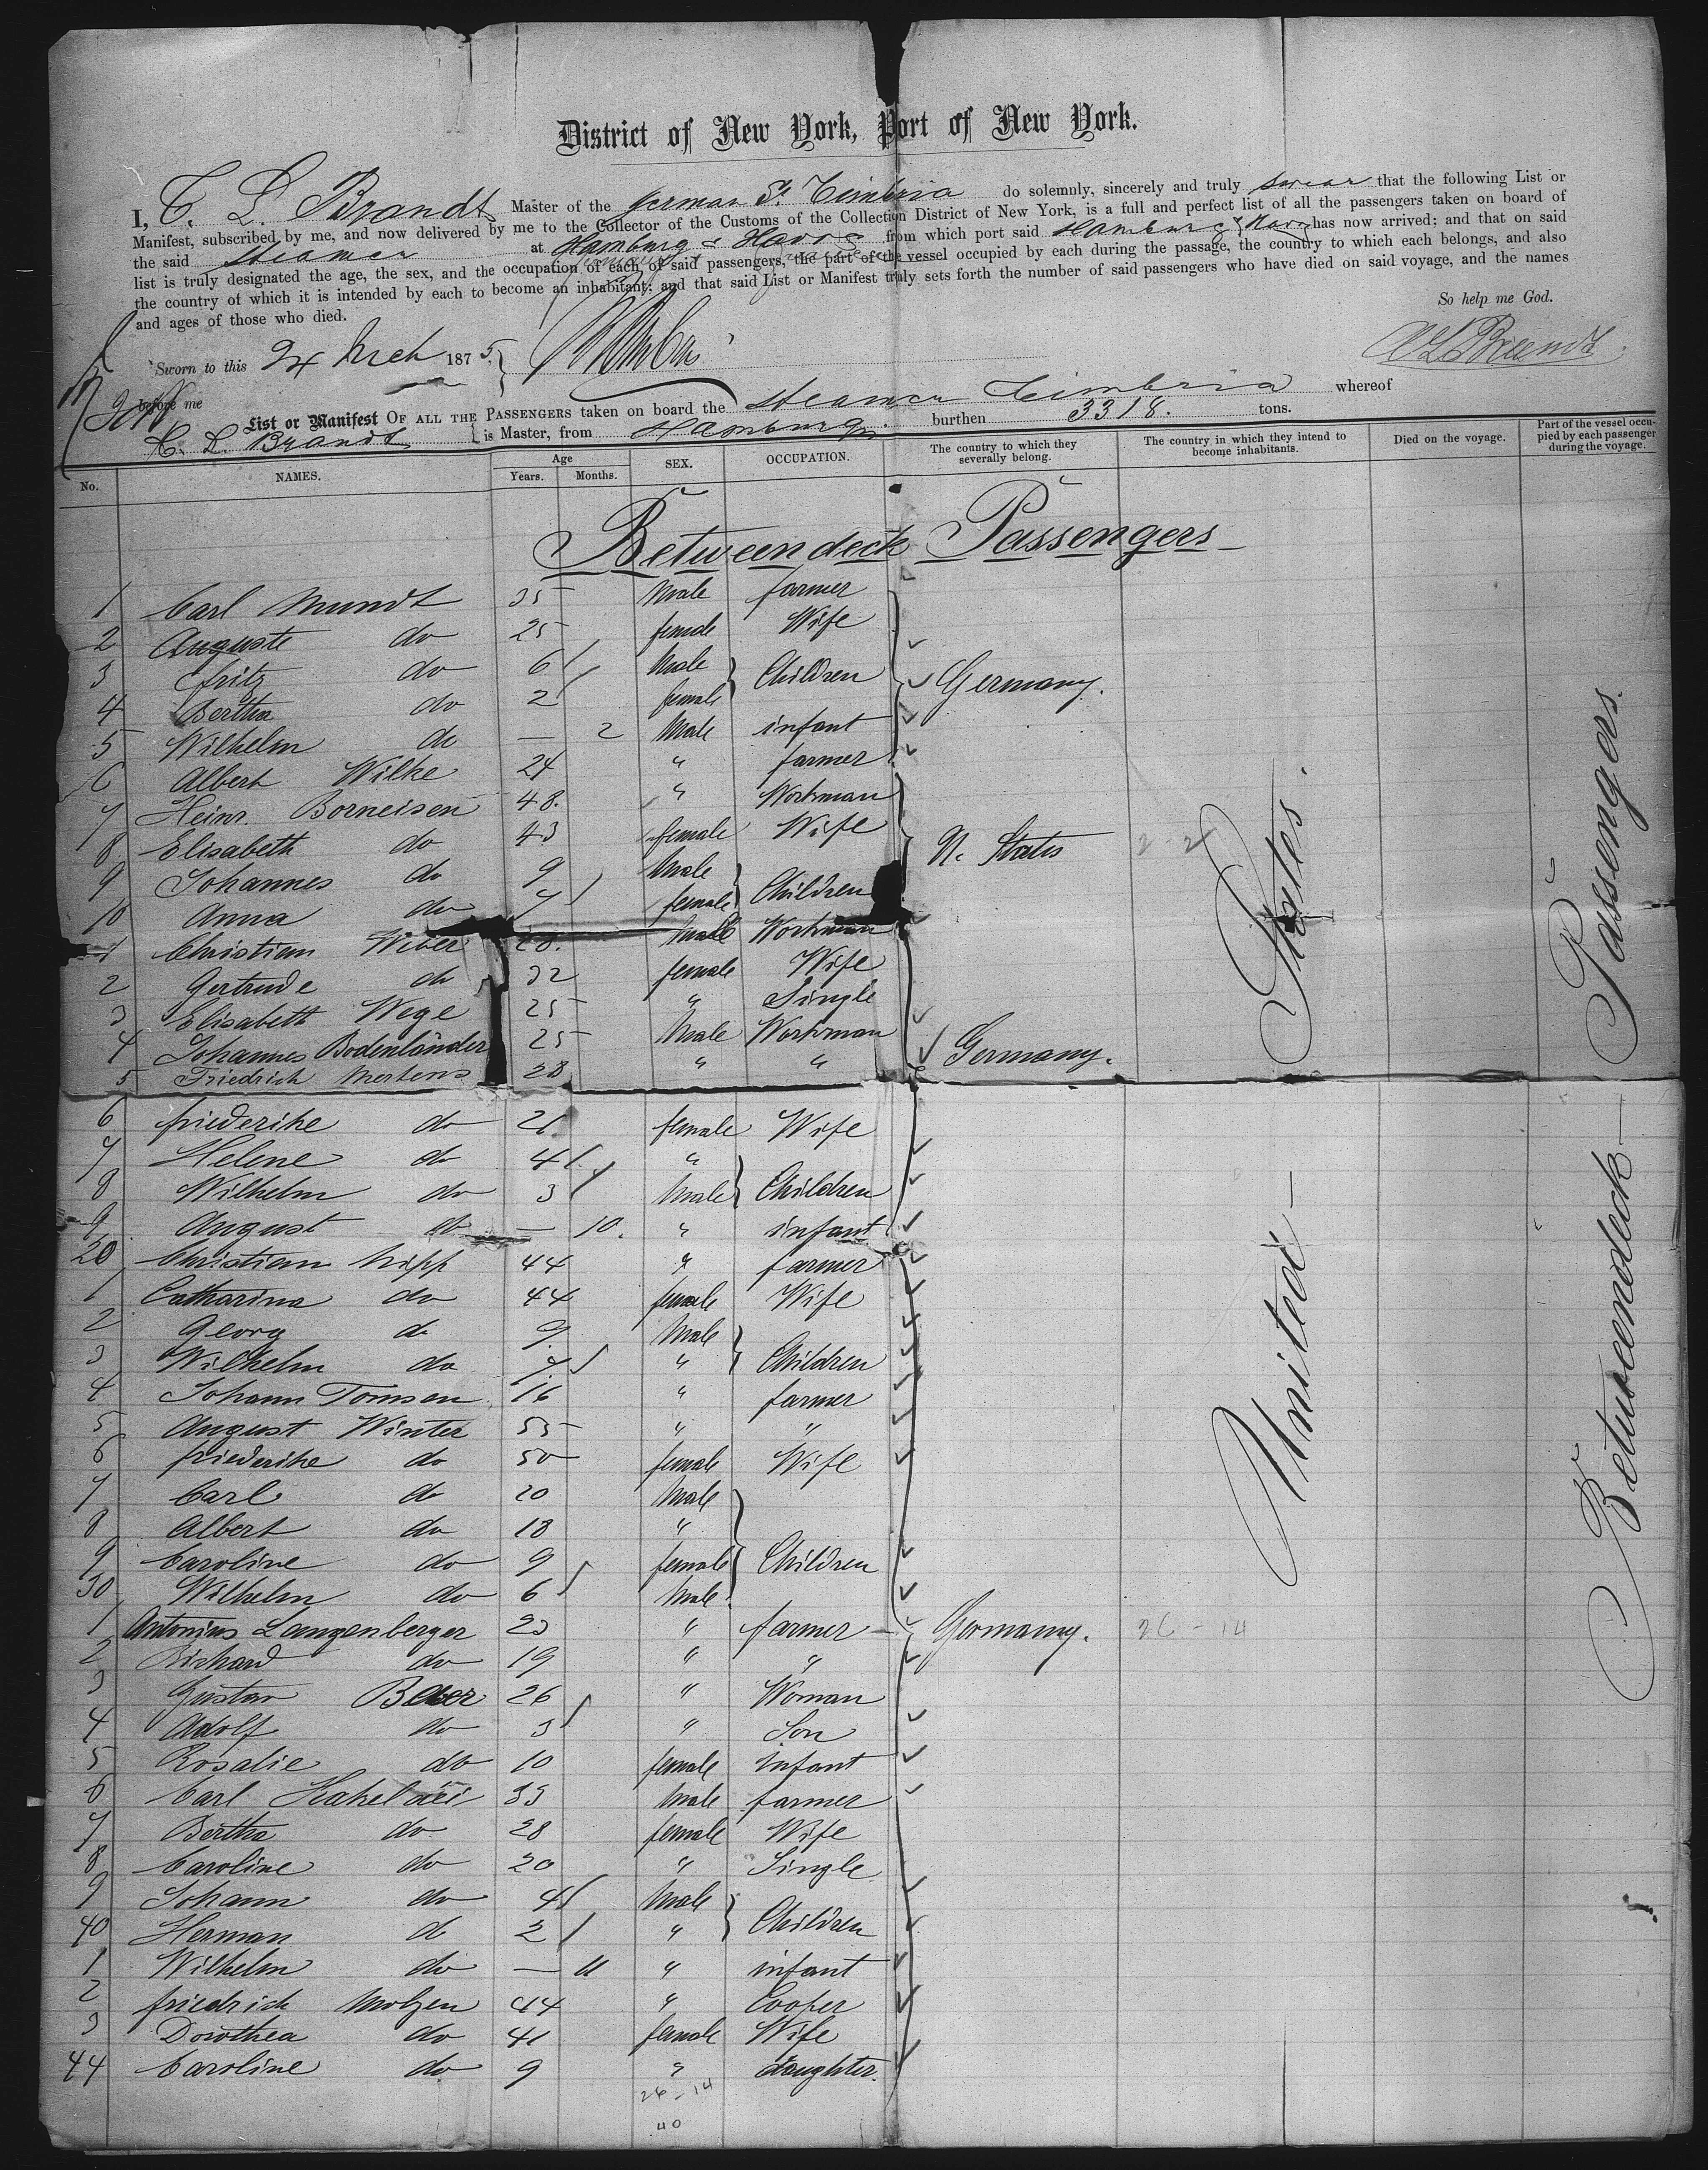 District of New York, Port of New York.
I, C. L. Brandt Master of the German S. Cimbria do solemnly, sincerely and truly swear that the following List or
Manifest, subscribed by me, and now delivered by me to the Collector of the Customs of the Collection District of New York, is a full and perfect list of all the passengers taken on board of
the said Steamer at Hamburg & Havre from which port said Hamburg & Havre has now arrived; and that on said
list is truly designated the age, the sex, and the occupation of each of said passengers, the part of the vessel occupied by each during the passage, the country to which each belongs, and also
the country of which it is intended by each to become an inhabitant; and that said List or Manifest truly sets forth the number of said passengers who have died on said voyage, and the names
and ages of those who died.
So help me God.
Sworn to this 24 March 1875
before me
CL Brandt
List or Manifest OF ALL THE PASSENGERS taken on board the Steamer Cimbria whereof
C. L. Brandt is Master, from Hamburg burthen 3318. tons.
No. NAMES. Age Years. Months. SEX. OCCUPATION. The country to which they severally belong. The country in which they intend to become inhabitants. Died on the voyage. Part of the vessel occupied by each passenger during the voyage.
Betweendeck Passengers
1 Carl Mundt 35 Male farmer
2 Auguste do 25 female Wife
3 fritz do 6 Male Children Germany.
4 Bertha do 2 female
5 Wilhelm do — 2 Male infant
6 Albert Wilke 24 " farmer
7 Heinr. Borneisen 48. " Workman
8 Elisabeth do 43 female Wife U. States
9 Johannes do 9 Male Children
10 Anna do 7 female
1 Christian Weber 28. Male Workman
2 Gertrude do 32 female Wife
3 Elisabeth Wege 25 " Single
4 Johannes Bodenländer 25 Male Workman Germany.
5 Friedrich Mertens 28 " "
6 friederike do 21 female Wife
7 Helene do 4 " Children
8 Wilhelm do 3 Male
9 August do — 10. " infant
20 Christian Nipp 44 " farmer
1 Catharina do 44 female Wife
2 Georg do 9. Male Children
3 Wilhelm do 7. "
4 Johann Tomsen 16 " farmer
5 August Winter 55 " "
6 friederike do 50 female Wife
7 Carl do 20 Male Children
8 Albert do 18 "
9 Caroline do 9 female
30 Wilhelm do 6 Male
1 Antonius Langenberger 23 " farmer Germany. 26 - 14
2 Richard do 19 " "
3 Gustav 26 " Woman
4 Adolf do 3 " Son
5 Rosalie do 10 female infant
6 Carl 33 Male farmer
7 Bertha do 28 female Wife
8 Caroline do 20 " Single
9 Johann do 4 Male Children
40 Herman do 2 "
1 Wilhelm do — 11 " infant
2 friedrich Molzen 44 " Cooper
3 Dorothea do 41 female Wife
44 Caroline do 9 " daughter.
26 - 14
40
United States
Betweendeck Passengers.